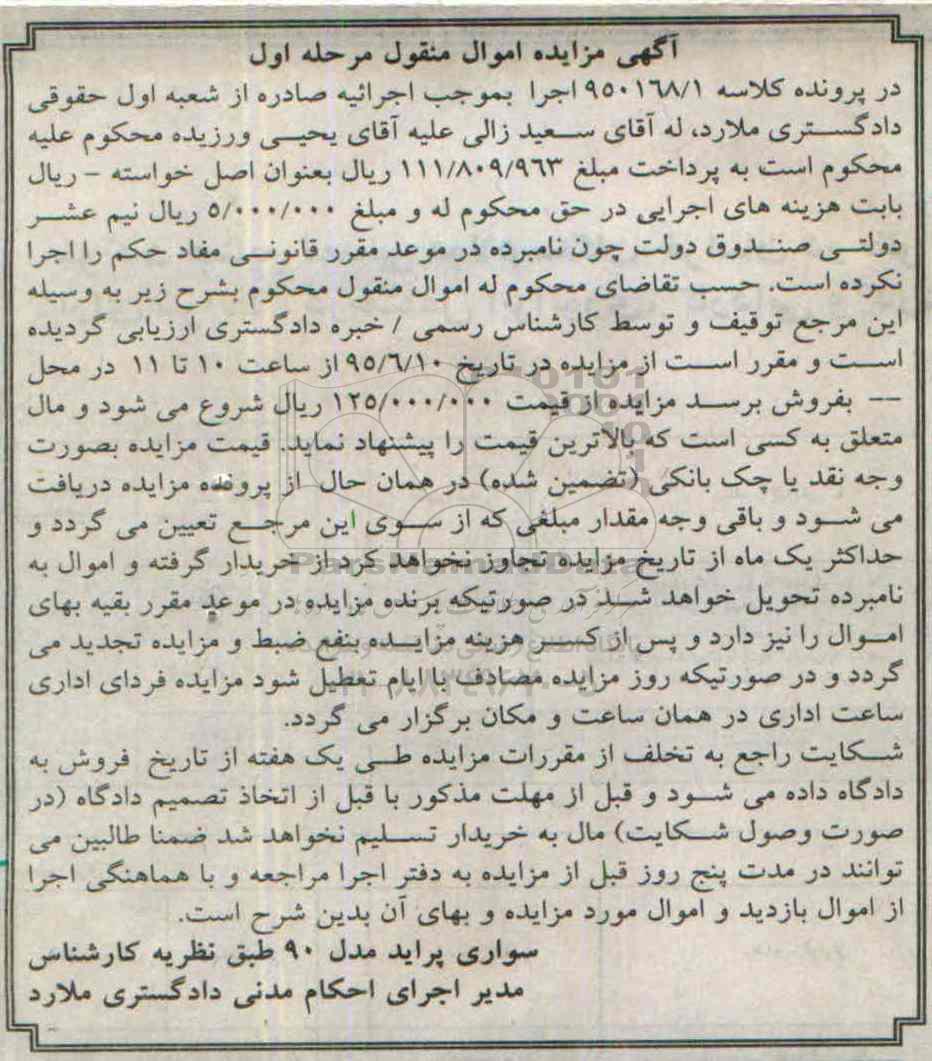 آگهی مزایده اموال منقول مرحله اول
در پرونده کلاسه ۹۵۰۱۶۸/۱ اجرا بموجب اجرائیه صادره از شعبه اول حقوقی
دادگستری ملارد، له آقای سعید زالی علیه آقای یحیی ورزیده محکوم علیه
محکوم است به پرداخت مبلغ ۱۱۱/۸۰۹/۹۶۳ ریال بعنوان اصل خواسته - ریال
بابت هزینه های اجرایی در حق محکوم له و مبلغ ۵/۰۰۰/۰۰۰ ریال نیم عشر
دولتی صندوق دولت چون نامبرده در موعد مقرر قانونی مفاد حکم را اجرا
نکرده است. حسب تقاضای محکوم له اموال منقول محکوم بشرح زیر به وسیله
این مرجع توقیف و توسط کارشناس رسمی / خبره دادگستری ارزیابی گردیده
است و مقرر است از مزایده در تاریخ ۹۵/۶/۱۰ از ساعت ۱۰ تا ۱۱ در محل
-- بفروش برسد مزایده از قیمت ۱۲۵/۰۰۰/۰۰۰ ریال شروع می شود و مال
متعلق به کسی است که بالاترین قیمت را پیشنهاد نماید. قیمت مزایده بصورت
وجه نقد یا چک بانکی (تضمین شده) در همان حال از پرونده مزایده دریافت
می شود و باقی وجه مقدار مبلغی که از سوی این مرجع تعیین می گردد و
حداکثر یک ماه از تاریخ مزایده تجاوز نخواهد کرد از خریدار گرفته و اموال به
نامبرده تحویل خواهد شد در صورتیکه برنده مزایده در موعد مقرر بقیه بهای
اموال را نیز دارد و پس از کسر هزینه مزایده بنفع ضبط و مزایده تجدید می
گردد و در صورتیکه روز مزایده مصادف با ایام تعطیل شود مزایده فردای اداری
ساعت اداری در همان ساعت و مکان برگزار می گردد.
شکایت راجع به تخلف از مقررات مزایده طی یک هفته از تاریخ فروش به
دادگاه داده می شود و قبل از مهلت مذکور با قبل از اتخاذ تصمیم دادگاه (در
صورت وصول شکایت) مال به خریدار تسلیم نخواهد شد ضمنا طالبین می
توانند در مدت پنج روز قبل از مزایده به دفتر اجرا مراجعه و با هماهنگی اجرا
از اموال بازدید و اموال مورد مزایده و بهای آن بدین شرح است.
سواری پراید مدل ۹۰ طبق نظریه کارشناس
مدیر اجرای احکام مدنی دادگستری ملارد